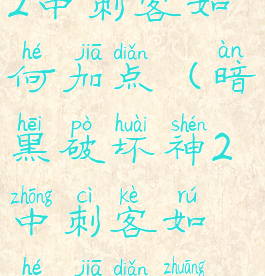 2中刺客如
hé jiā diǎn àn
何加点（暗
hēi pò huài shén
黑破坏神2
zhōng cì kè rú
中刺客如
hé jiā diǎn zhuāng